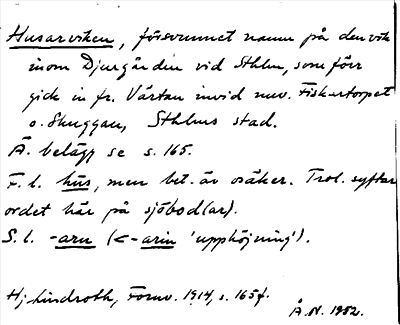 Husarviken, försvunnet namn på den vik
inom Djurgården vid Sthlm, som förr
gick in fr. Värtan invid nuv. Fiskartorpet
o. Skuggan, Sthlms stad.
Ä. belägg se s. 165.
F. l. hus, men bet. är osäker. Trol. syftar
ordet här på sjöbod(ar).
S. l. -arn (<-arin 'upphöjning').
Hj. Lindroth, Fornv. 1914, s. 165 f.
Å.N. 1952.